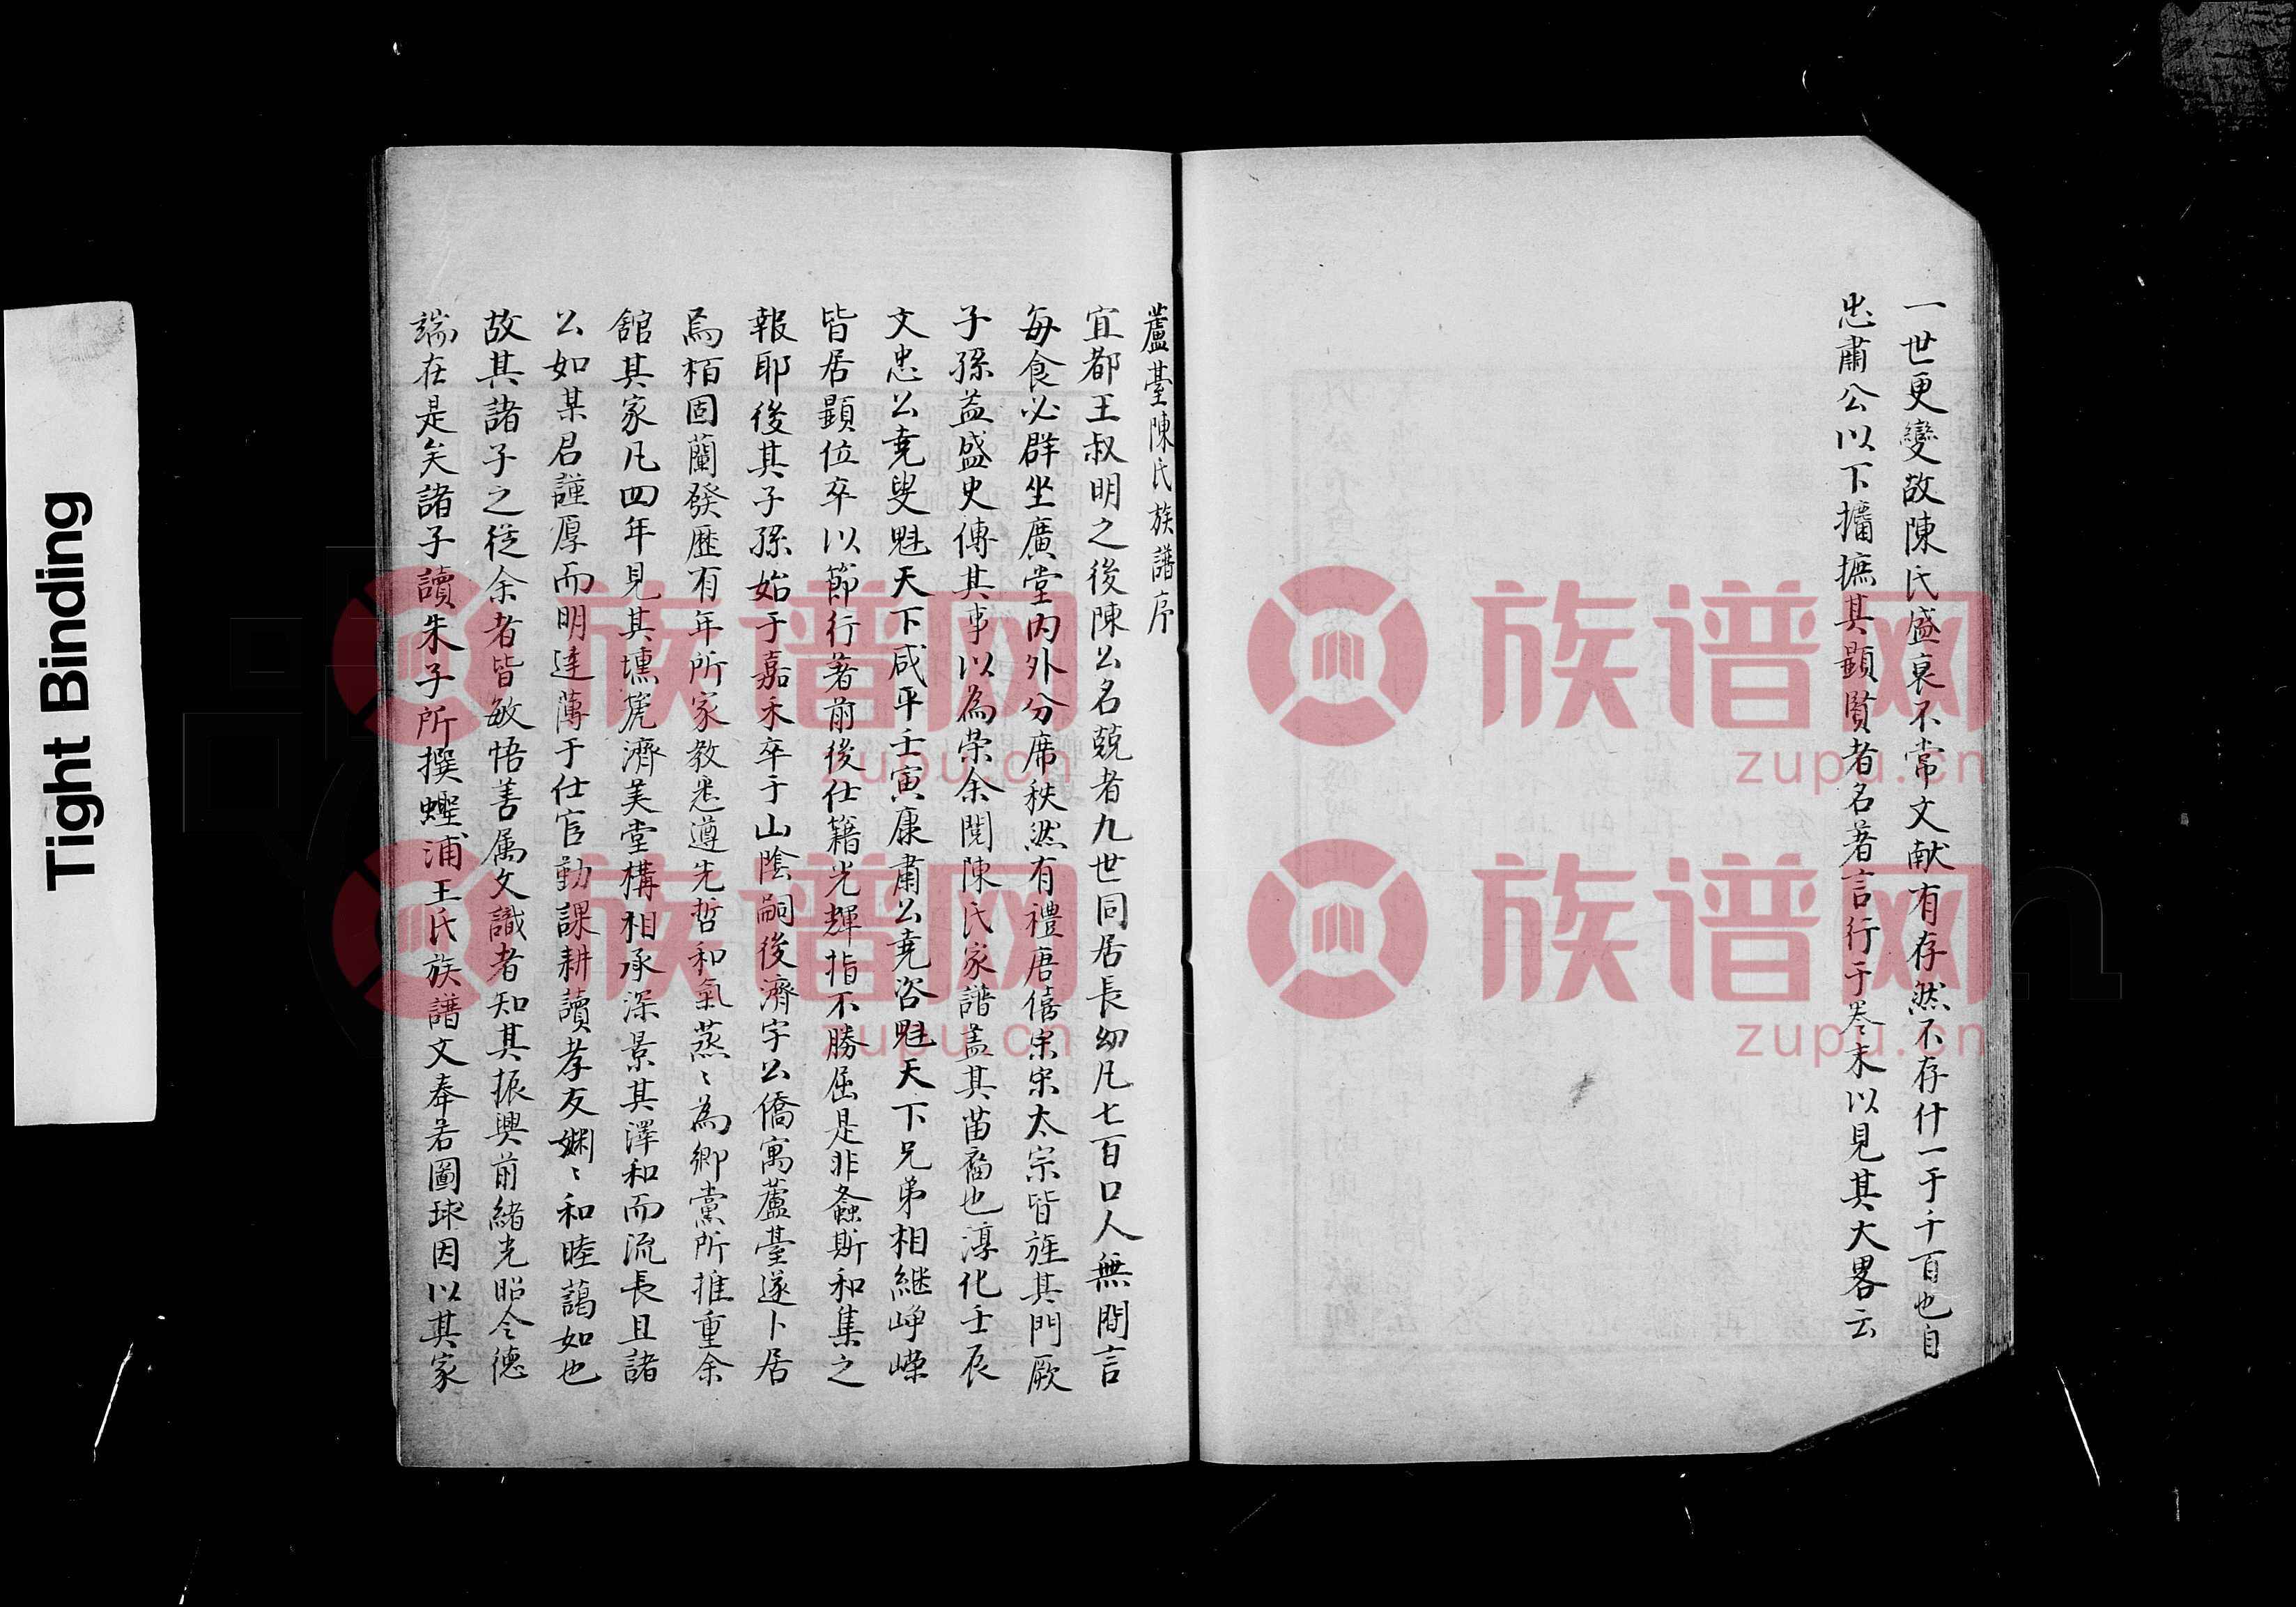 一世更變故陳氏盛衰不常文献有存然不存什一于千百也自
忠肅公以下攟摭其顯賢者名著言行于卷末以見其大畧云
蘆臺陳氏族譜序
宜都王叔明之後陳公名兢者九世同居長幼凡七百口人無間言
每食必群坐廣堂内外分席秩然有禮唐僖宗宋太宗皆旌其門厥
子孫益盛史傳其事以為荣余閲陳氏家譜盖其苗裔也淳化壬辰
文忠公堯叟魁天下咸平壬寅康肅公堯咨魁天下兄弟相継崢嶸
皆居顯位卒以節行著前後仕籍光輝指不勝屈是非螽斯和集之
報耶後其子孫始于嘉禾卒于山陰嗣後濟字公僑寓蘆臺遂卜居
焉栢固蘭發歷有年所家教悉遵先哲和氣蒸〻為鄉黨所推重余
舘其家凡四年見其壎篪濟美堂構相承深景其澤和而流長且諸
公如某君謹厚而明達薄于仕宦勤課耕讀孝友婣〻和睦藹如也
故其諸子之從余者皆敏悟善属文識者知其振興前緒光昭令德
端在是矣諸子讀朱子所撰蟶浦王氏族譜文奉若圖球因以其家
Tight Binding
族谱网
zupu.cn
族谱网
zupu.cn
族谱网
zupu.cn
族谱网
zupu.cn